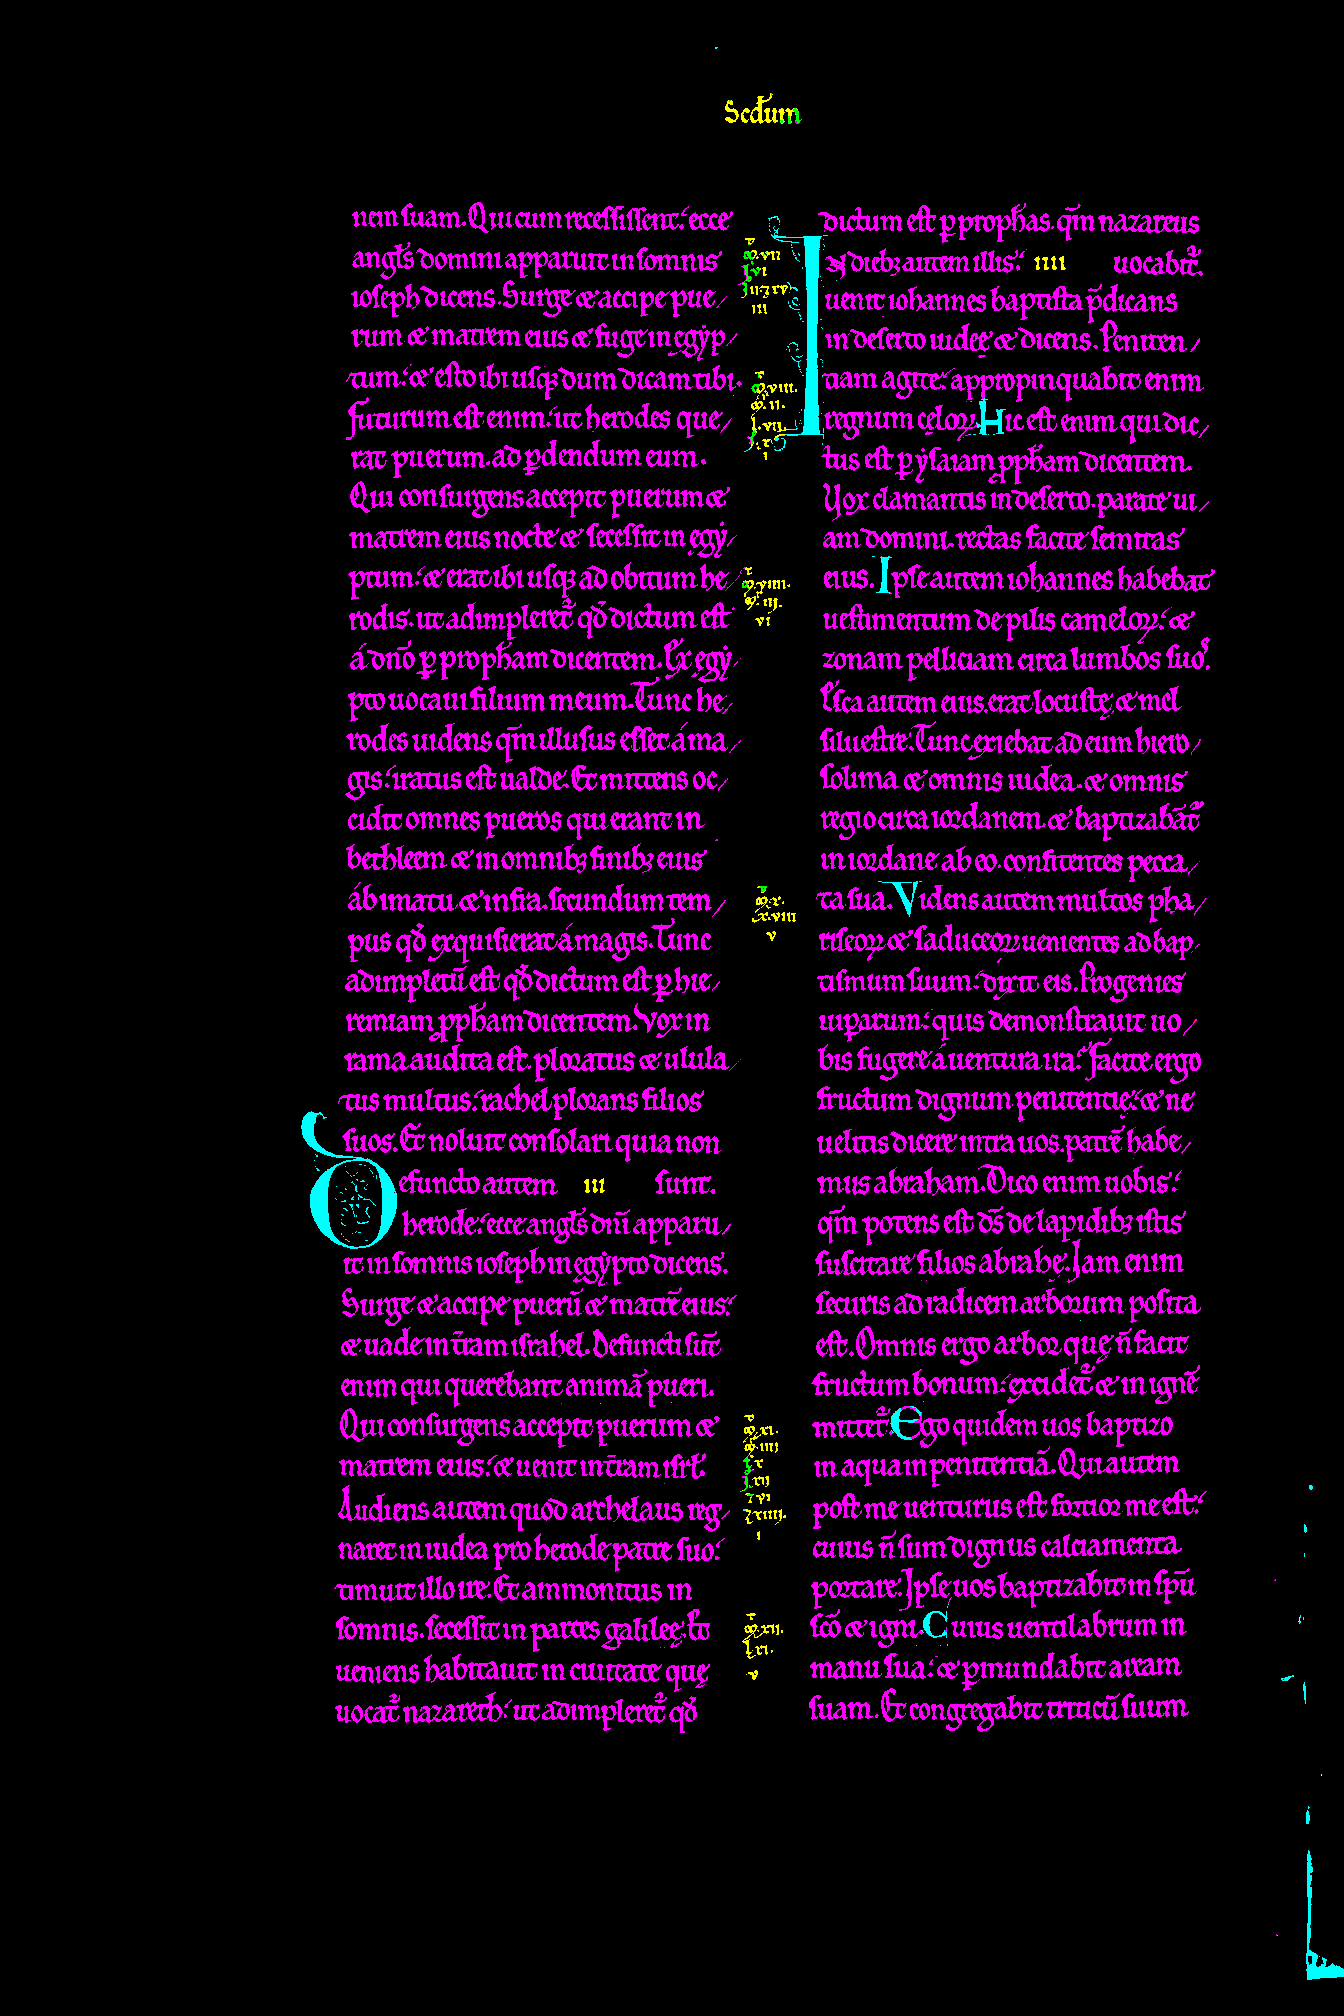 Scdum
nem suam. Qui cum recessissent: ecce
angls domini apparuit in somnis
ioseph dicens. Surge & accipe pue
rum & matrem eius & fuge in egẏp
tum: & esto ibi usq; dum dicam tibi.
futurum est enim: ut herodes que
rat puerum. ad pdendum eum.
Qui consurgens accepit puerum &
matrem eius nocte & secessit in egẏ
ptum: & erat ibi usq; ad obitum he
rodis. ut adimpleret² qđ dictum est
á dno p propham dicentem. Ex egẏ
pto uocaui filium meum. Tunc he
rodes uidens qm illusus esset á ma
gis: iratus est ualde. Et mittens oc
cidit omnes pueros qui erant in
bethleem & in omnib; finib; eius
ábimatu & infra. secundum tem
pus qđ exquisierat á magis. Tunc
adimpletū est qđ dictum est p hie
remiam ppham dicentem. Vox in
rama audita est. ploratus & ulula
tus multus: rachel plorans filios
suos. Et noluit consolari quia non
Defuncto autem III sunt.
herode: ecce angls dnī apparu
it in somnis ioseph in egẏpto dicens.
Surge & accipe puerū & matrē eius:
& uade in tram israhel. Defuncti sūt
enim qui querebant animā pueri.
Qui consurgens accepit puerum &
matrem eius: & uenit in tram isrl.
Audiens autem quod archelaus reg
naret in iudea pro herode patre suo:
timuit illo ire. Et ammonitus in
somnis. secessit in partes galilee. Et
ueniens habitauit in ciuitate que
uocat² nazareth: ut adimpleret² qđ
dictum est p prophas. qm nazareus
In dieb; autem illis: IIII uocabit².
uenit iohannes baptista pdicans
in deserto iudee & dicens. Peniten
tiam agite: appropinquabit enim
regnum celoꝝ. Hic est enim qui dic
tus est p ẏsaiam ppham dicentem.
Vox clamantis in deserto. parate ui
am domini. rectas facite semitas
eius. Ipse autem iohannes habebat
uestimentum de pilis cameloꝝ: &
zonam pelliciam circa lumbos suos.
Esca autem eius. erat locuste & mel
siluestre. Tunc exiebat ad eum hiero
solima & omnis iudea. & omnis
regio circa iordanem. & baptizabāt²
in iordane ab eo. confitentes pecca
ta sua. Videns autem multos pha
riseoꝝ & saduceoꝝ uenientes ad bap
tismum suum: dixit eis. Progenies
uiparum: quis demonstrauit uo
bis fugere á uentura ira? Facite ergo
fructum dignum penitentie: & ne
uelitis dicere intra uos. patrē habe
mus abraham. Dico enim uobis:
qm potens est ds de lapidib; istis
suscitare filios abrahe. Jam enim
securis ad radicem arborum posita
est. Omnis ergo arbor que n̄ facit
fructum bonum: excidet² & in ignē
mittet². Ego quidem uos baptizo
in aqua in penitentiā. Qui autem
post me uenturus est fortior me est:
cuius n̄ sum dignus calciamenta
portare. Ipse uos baptizabit in spū
sco & igni. Cuius uentilabrum in
manu sua: & pmundabit aream
suam. Et congregabit triticū suum